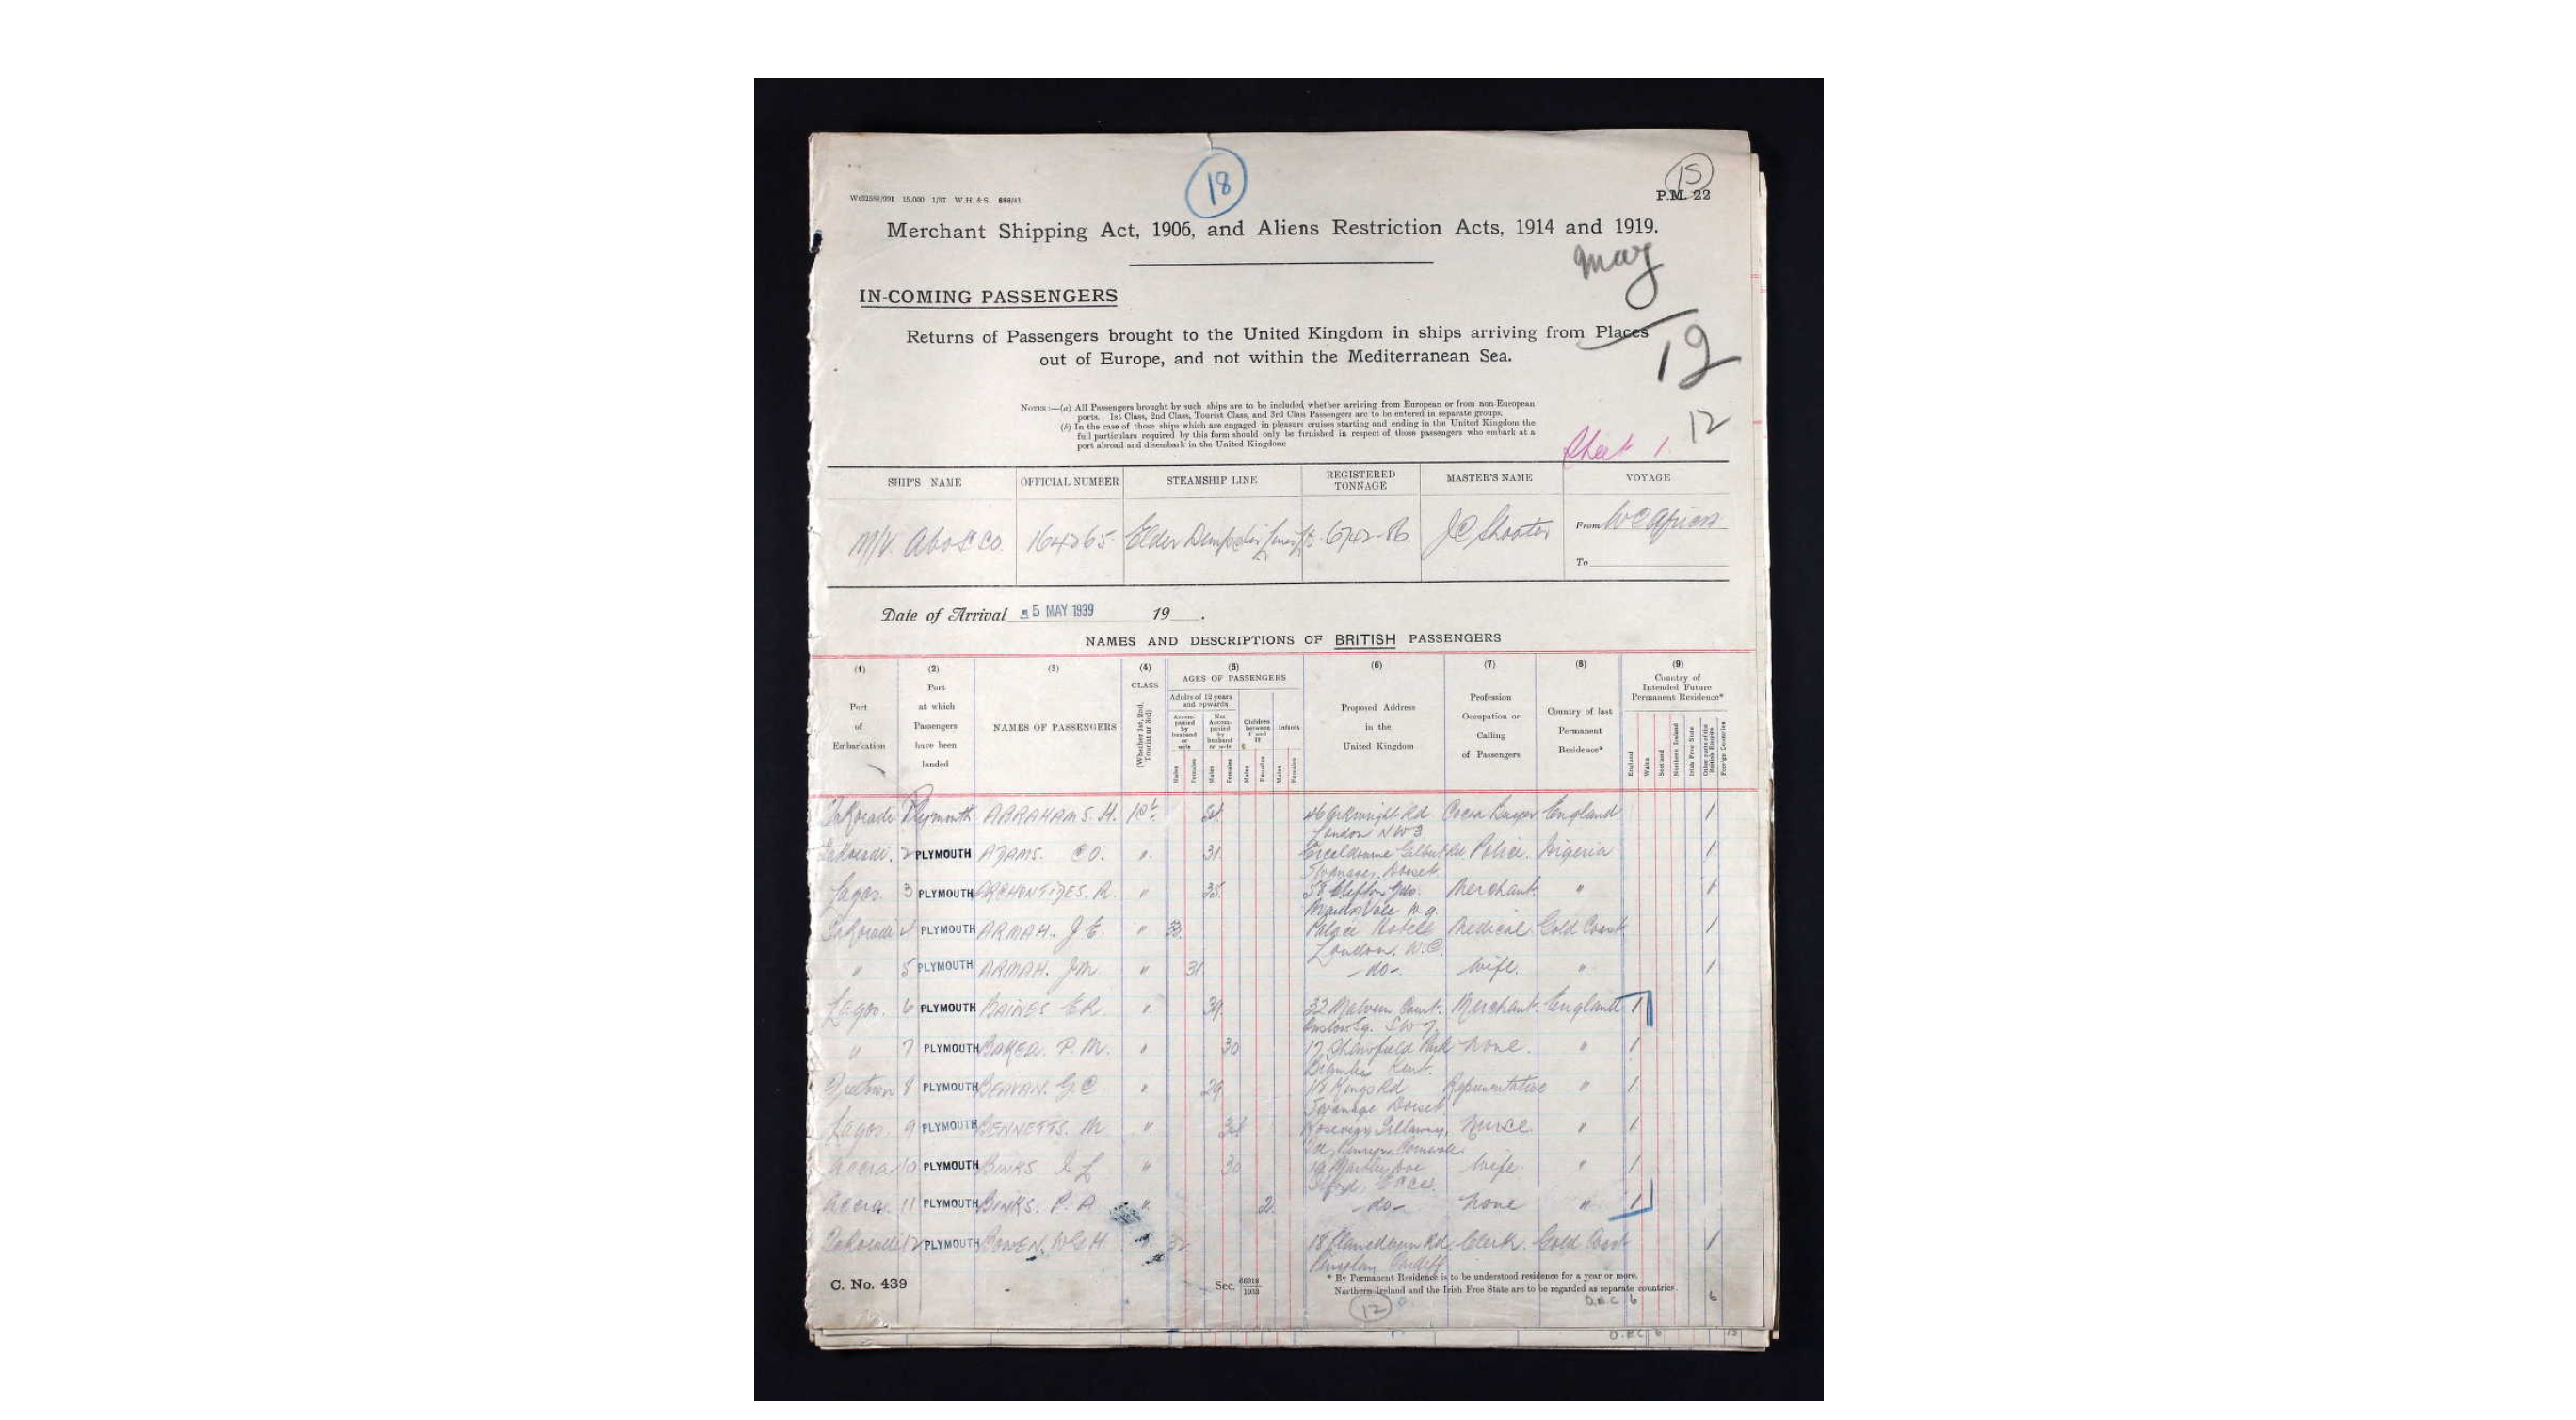 18
15
Wt32584/998 15,000 1/37 W.H.&S. 666/41
P.M. 22
Merchant Shipping Act, 1906, and Aliens Restriction Acts, 1914 and 1919.
May
IN-COMING PASSENGERS
Returns of Passengers brought to the United Kingdom in ships arriving from Places
out of Europe, and not within the Mediterranean Sea.
12
12
Notes:—(a) All Passengers brought by such ships are to be included, whether arriving from European or from non-European
ports. 1st Class, 2nd Class, Tourist Class, and 3rd Class Passengers are to be entered in separate groups.
(b) In the case of those ships which are engaged in pleasure cruises starting and ending in the United Kingdom the
full particulars required by this form should only be furnished in respect of those passengers who embark at a
port abroad and disembark in the United Kingdom
Sheet 1
SHIP'S NAME OFFICIAL NUMBER STEAMSHIP LINE REGISTERED TONNAGE MASTER'S NAME VOYAGE
M/V. Abosso 164265 Elder Dempster Lines 6742.86 J C Shooter From W C Africa
To
Date of Arrival 5 MAY 1939 19 .
NAMES AND DESCRIPTIONS OF BRITISH PASSENGERS
(1) (2) (3) (4) (5) (6) (7) (8) (9)
Port of Embarkation
Port at which Passengers have been landed
NAMES OF PASSENGERS
CLASS (Whether 1st, 2nd, Tourist or 3rd)
AGES OF PASSENGERS
Adults of 12 years and upwards
Accompanied by husband or wife
Not Accompanied by husband or wife
Children between 1 and 12
Infants
Males Females Males Females Males Females Males Females
Proposed Address in the United Kingdom
Profession Occupation or Calling of Passengers
Country of last Permanent Residence*
Country of Intended Future Permanent Residence*
England Wales Scotland Northern Ireland Irish Free State Other parts of the British Empire Foreign Countries
Takoradi Plymouth ABRAHAMS. H. 1st 46 Arkwright Rd Cocoa Buyer England 1
London NW3
Takoradi. 2 PLYMOUTH ADAMS. C O. " 31 Erceldoune Gilbert Rd. Police. Nigeria 1
Swanage. Dorset
Lagos. 3 PLYMOUTH ARCHONTIDES. R. " 35 58 Clifton Gdns. Merchant " 1
Maida Vale W.9.
Takoradi 4 PLYMOUTH ARMAH. J E. " 33 Palace Hotel Medical Gold Coast 1
London. W.C.
" 5 PLYMOUTH ARMAH. J M. " 31 -do- Wife. " 1
Lagos. 6 PLYMOUTH BAINES E R " 39 32 Malvern Court. Merchant England 1
Onslow Sq. SW7
" 7 PLYMOUTH BAKER. P. M. " 30 17 Park None. " 1
Bromley Kent.
Freetown 8 PLYMOUTH BEAVAN. G. C " 29 118 Kings Rd Representative " 1
Swanage Dorset
Lagos. 9 PLYMOUTH BENNETTS. M " Nurse " 1
Rd, Penryn, Cornwall
Accra 10 PLYMOUTH BINKS L " 30 19 Ave Wife " 1
Ilford, Essex.
Accra. 11 PLYMOUTH BINKS. P. A " 2 -do- None " 1
Takoradi 12 PLYMOUTH BOWEN. W G H. " 32 18 Rd Clerk. Gold Coast 1
Penylan Cardiff
C. No. 439
Sec. 66918/1933
* By Permanent Residence is to be understood residence for a year or more.
Northern Ireland and the Irish Free State are to be regarded as separate countries.
12
6
6